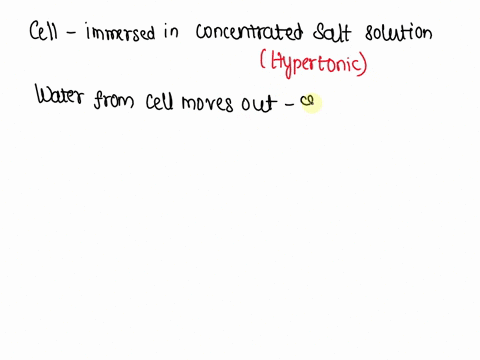 Cell - immersed in concentrated salt solution
(Hypertonic)
Water from cell moves out -